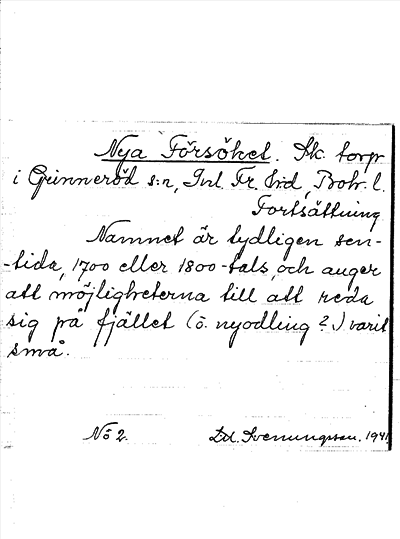 Nya Försöket. Sk. torp
i Grinneröd s:n, Inl. Fr. hd, Boh. l.
Fortsättning
Namnet är tydligen sen-
-tida, 1700 eller 1800-tals, och anger
att möjligheterna till att reda
sig på fjället (o. nyodling?) varit
små.
Nö 2. Ld. Svenungsson. 1941